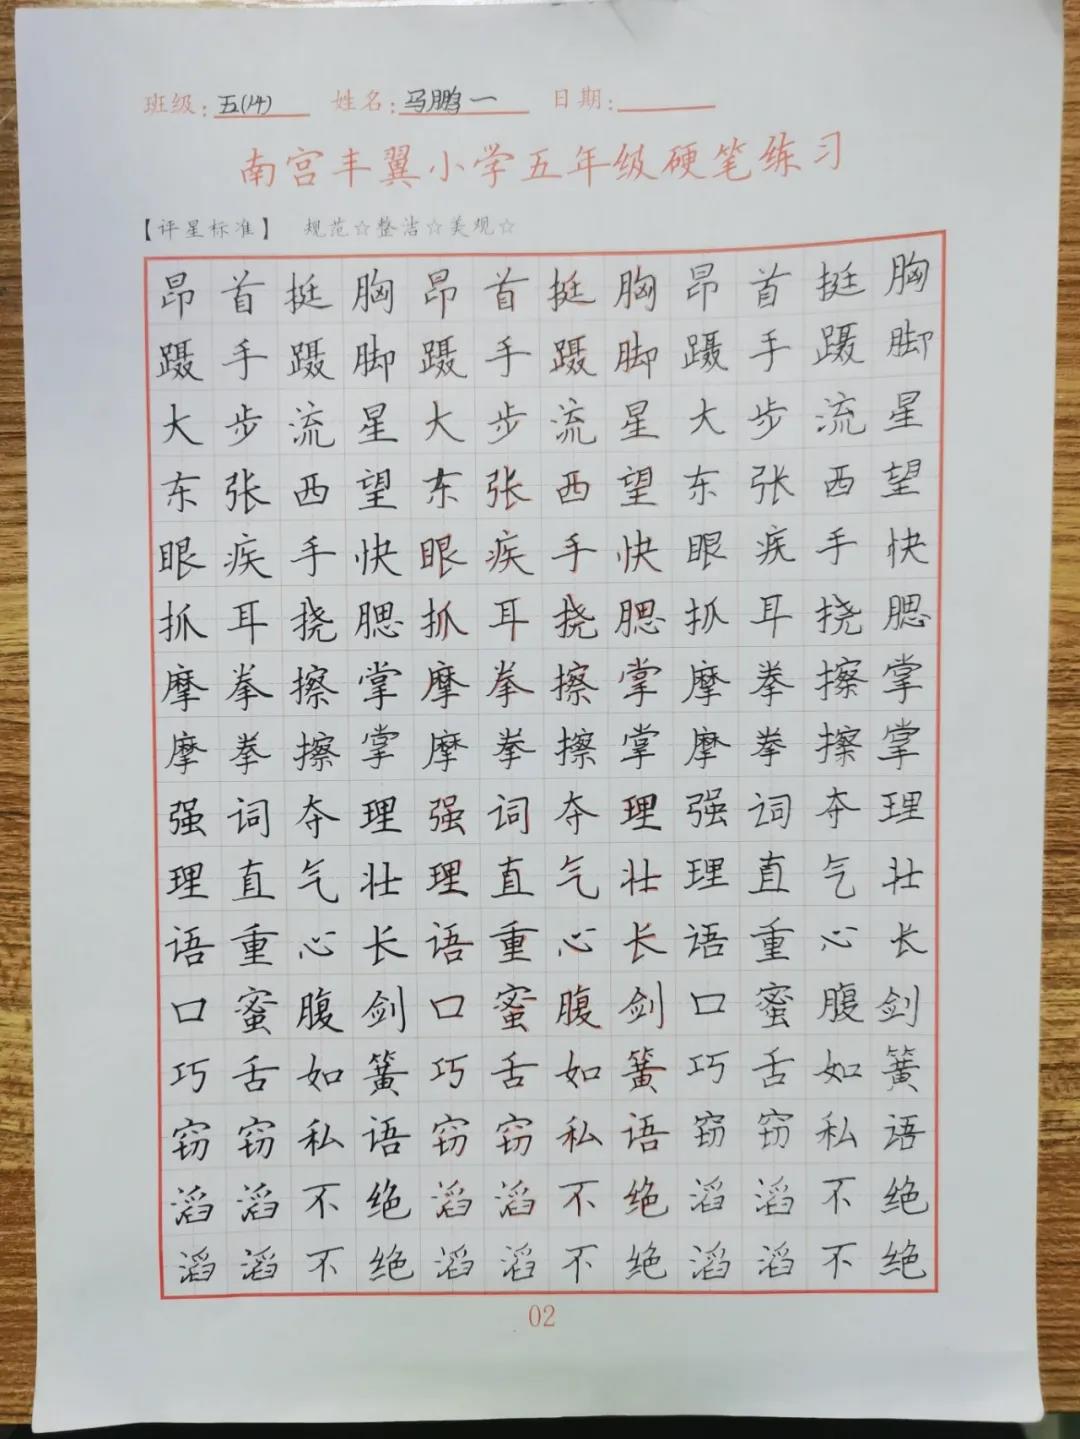 班级:五(14) 姓名:马鹏一 日期:
南宫丰翼小学五年级硬笔练习
【评星标准】 规范☆整洁☆美观☆
昂首挺胸昂首挺胸昂首挺胸
蹑手蹑脚蹑手蹑脚蹑手蹑脚
大步流星大步流星大步流星
东张西望东张西望东张西望
眼疾手快眼疾手快眼疾手快
抓耳挠腮抓耳挠腮抓耳挠腮
摩拳擦掌摩拳擦掌摩拳擦掌
摩拳擦掌摩拳擦掌摩拳擦掌
强词夺理强词夺理强词夺理
理直气壮理直气壮理直气壮
语重心长语重心长语重心长
口蜜腹剑口蜜腹剑口蜜腹剑
巧舌如簧巧舌如簧巧舌如簧
窃窃私语窃窃私语窃窃私语
滔滔不绝滔滔不绝滔滔不绝
滔滔不绝滔滔不绝滔滔不绝
02